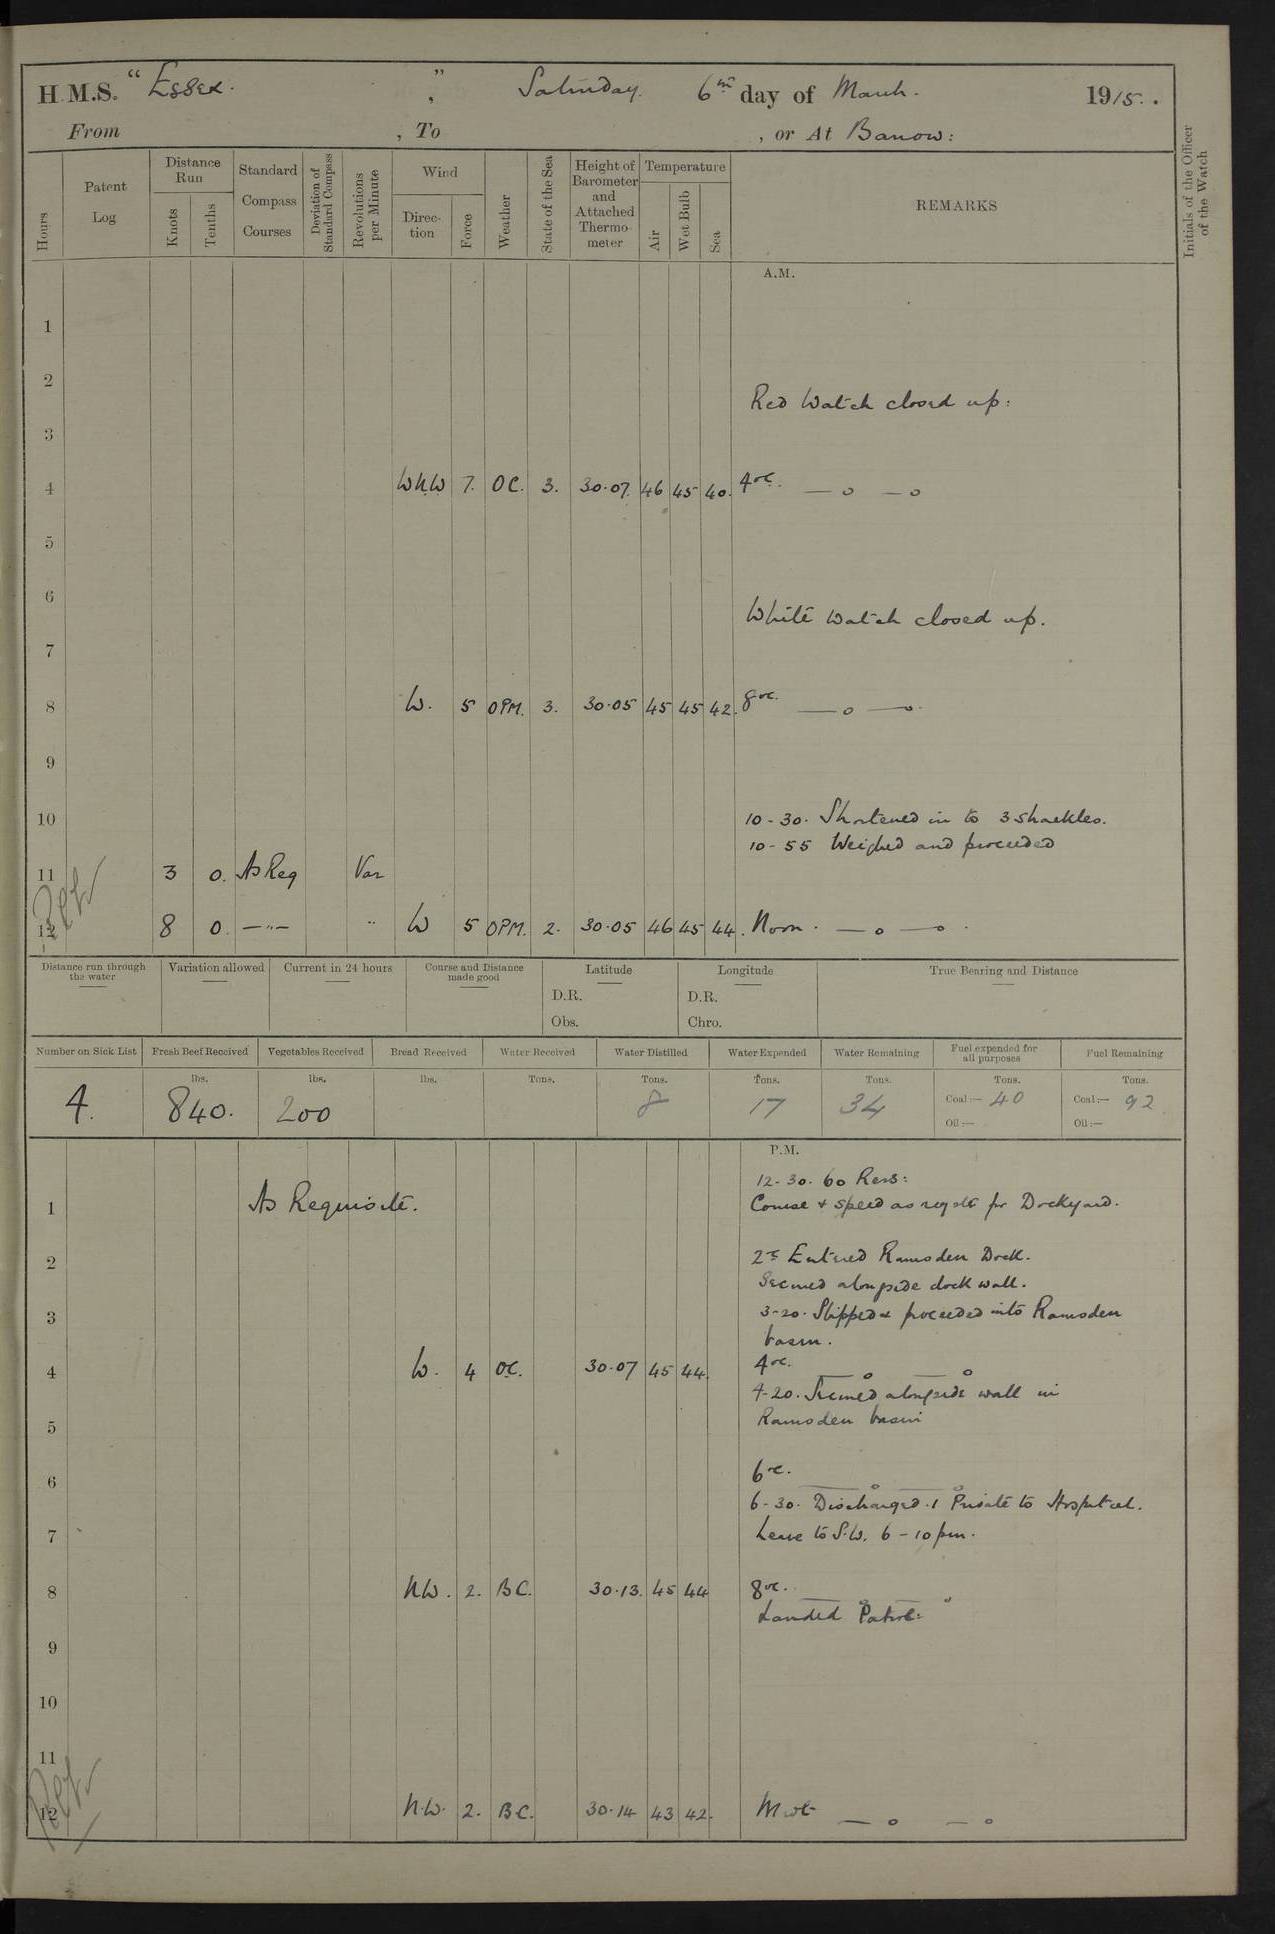 H.M.S. " Essex. ", Saturday. 6th day of March. 1915.
From , To , or At Barrow:
Hours
Patent Log
Distance Run
Knots
Tenths
Standard Compass Courses
Deviation of Standard Compass
Revolutions per Minute
Wind
Direction
Force
Weather
State of the Sea
Height of Barometer and Attached Thermometer
Temperature
Air
Wet Bulb
Sea
REMARKS
Initials of the Officer of the Watch
A.M.
1
2
Red Watch closed up:
3
4 WNW 7. OC. 3. 30.07. 46 45 40. 4oc. — o — o
5
6
White Watch closed up.
7
8 W. 5 OPM. 3. 30.05 45 45 42. 8oc. — o — o
9
10 10-30. Shortened in to 3 shackles.
10-55 Weighed and proceeded
11 3 0. As Req Var
12 8 0 —"— " W 5 OPM. 2. 30.05 46 45 44. Noon. — o — o
Distance run through the water
Variation allowed
Current in 24 hours
Course and Distance made good
Latitude
D.R.
Obs.
Longitude
D.R.
Chro.
True Bearing and Distance
Number on Sick List Fresh Beef Received Vegetables Received Bread Received Water Received Water Distilled Water Expended Water Remaining Fuel expended for all purposes Fuel Remaining
lbs. lbs. lbs. Tons. Tons. Tons. Tons. Tons. Tons.
4. 840. 200 8 17 34 Coal:— 40 Coal:— 92
Oil:— Oil:—
P.M.
12-30. 60 Revs:
1 As Requisite. Course & speed as reqste for Dockyard.
2 Entered Ramsden Dock.
2
Secured alongside dock wall.
3 3-20. Slipped & proceeded into Ramsden
basin.
4 W. 4 OC. 30.07 45 44. 4oc. — o — o
4-20. Secured alongside wall in
5 Ramsden basin
6 6oc. — o — o
6-30. Discharged 1 Private to Hospital.
7 Leave to S.W. 6-10 pm.
8 NW. 2. BC. 30.13. 45 44 8oc. — o — o
Landed Patrol:
9
10
11
12 N.W. 2. BC. 30.14 43 42. Mdt — o — o